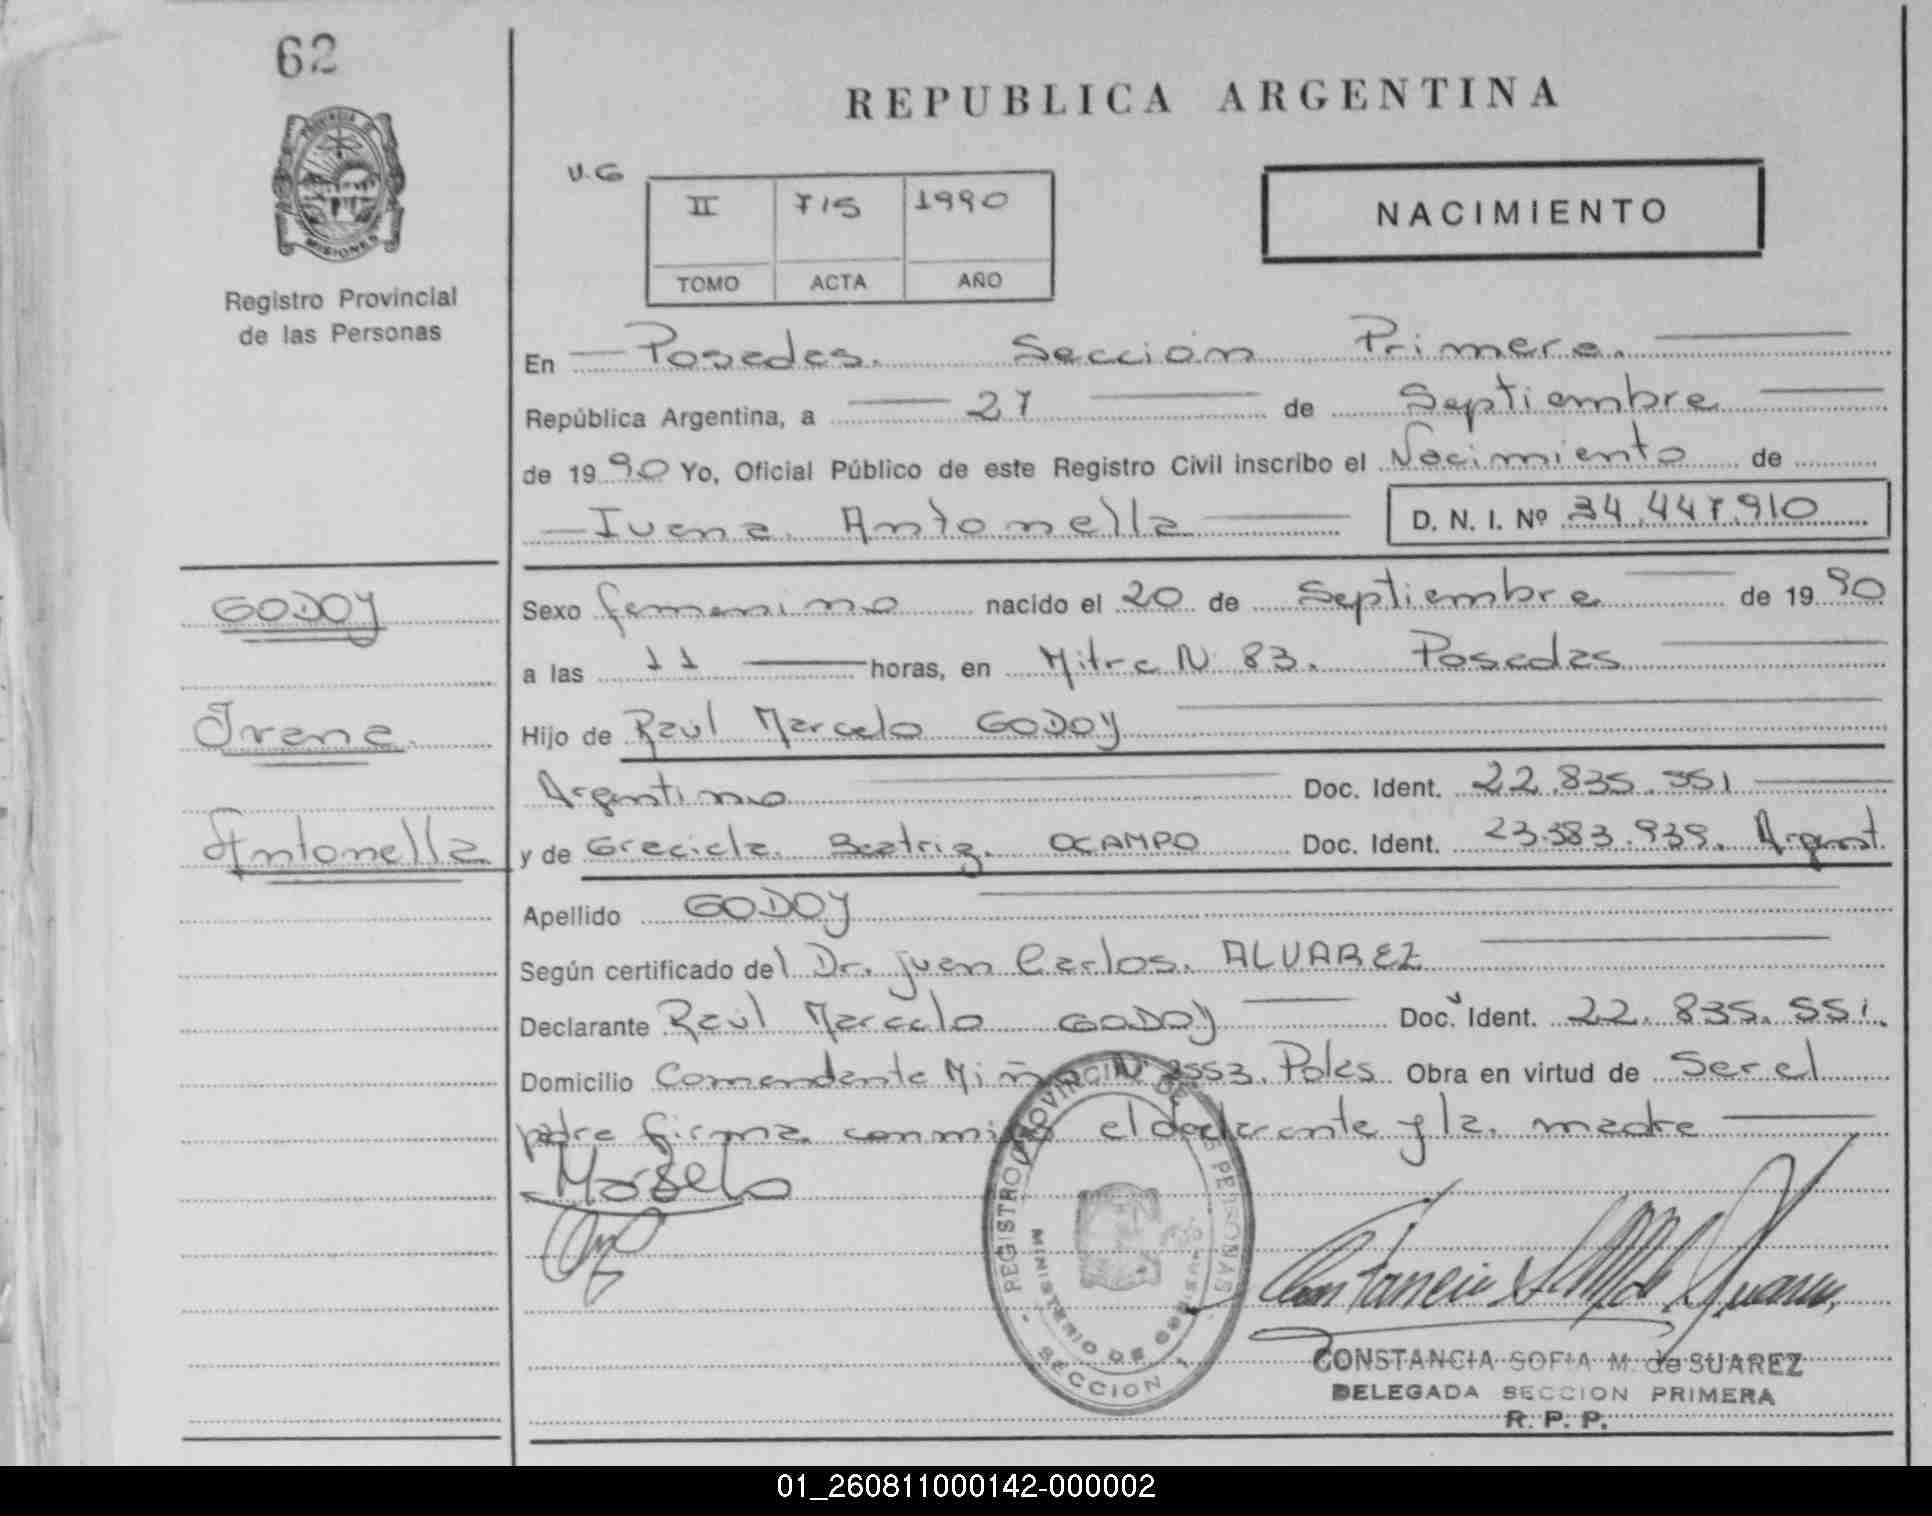 62
PROVINCIA DE
MISIONES
Registro Provincial
de las Personas
REPUBLICA ARGENTINA
V.G
II 715 1990
TOMO ACTA AÑO
NACIMIENTO
En Posadas. Sección Primera.
República Argentina, a 27 de Septiembre
de 1990 Yo, Oficial Público de este Registro Civil inscribo el Nacimiento de
Ivana Antonella
D. N. I. Nº 34.447.910
GODOY
Ivana
Antonella
Sexo femenino nacido el 20 de Septiembre de 1990
a las 11 horas, en Mitre N 83. Posadas
Hijo de Raúl Marcelo GODOY
Argentino Doc. Ident. 22.835.551
y de Graciela Beatriz OCAMPO Doc. Ident. 23.383.939. Argent.
Apellido GODOY
Según certificado del Dr. Juan Carlos ALVAREZ
Declarante Raúl Marcelo GODOY Doc. Ident. 22.835.551.
Domicilio Comandante Miño N 2553. Pdas Obra en virtud de Ser el
padre firma conmigo el declarante y la madre
Marselo
REGISTRO PROVINCIAL DE LAS PERSONAS
MINISTERIO DE GOBIERNO
SECCION 1
Constancia S M de Suarez
CONSTANCIA SOFIA M. de SUAREZ
DELEGADA SECCION PRIMERA
R. P. P.
01_260811000142-000002